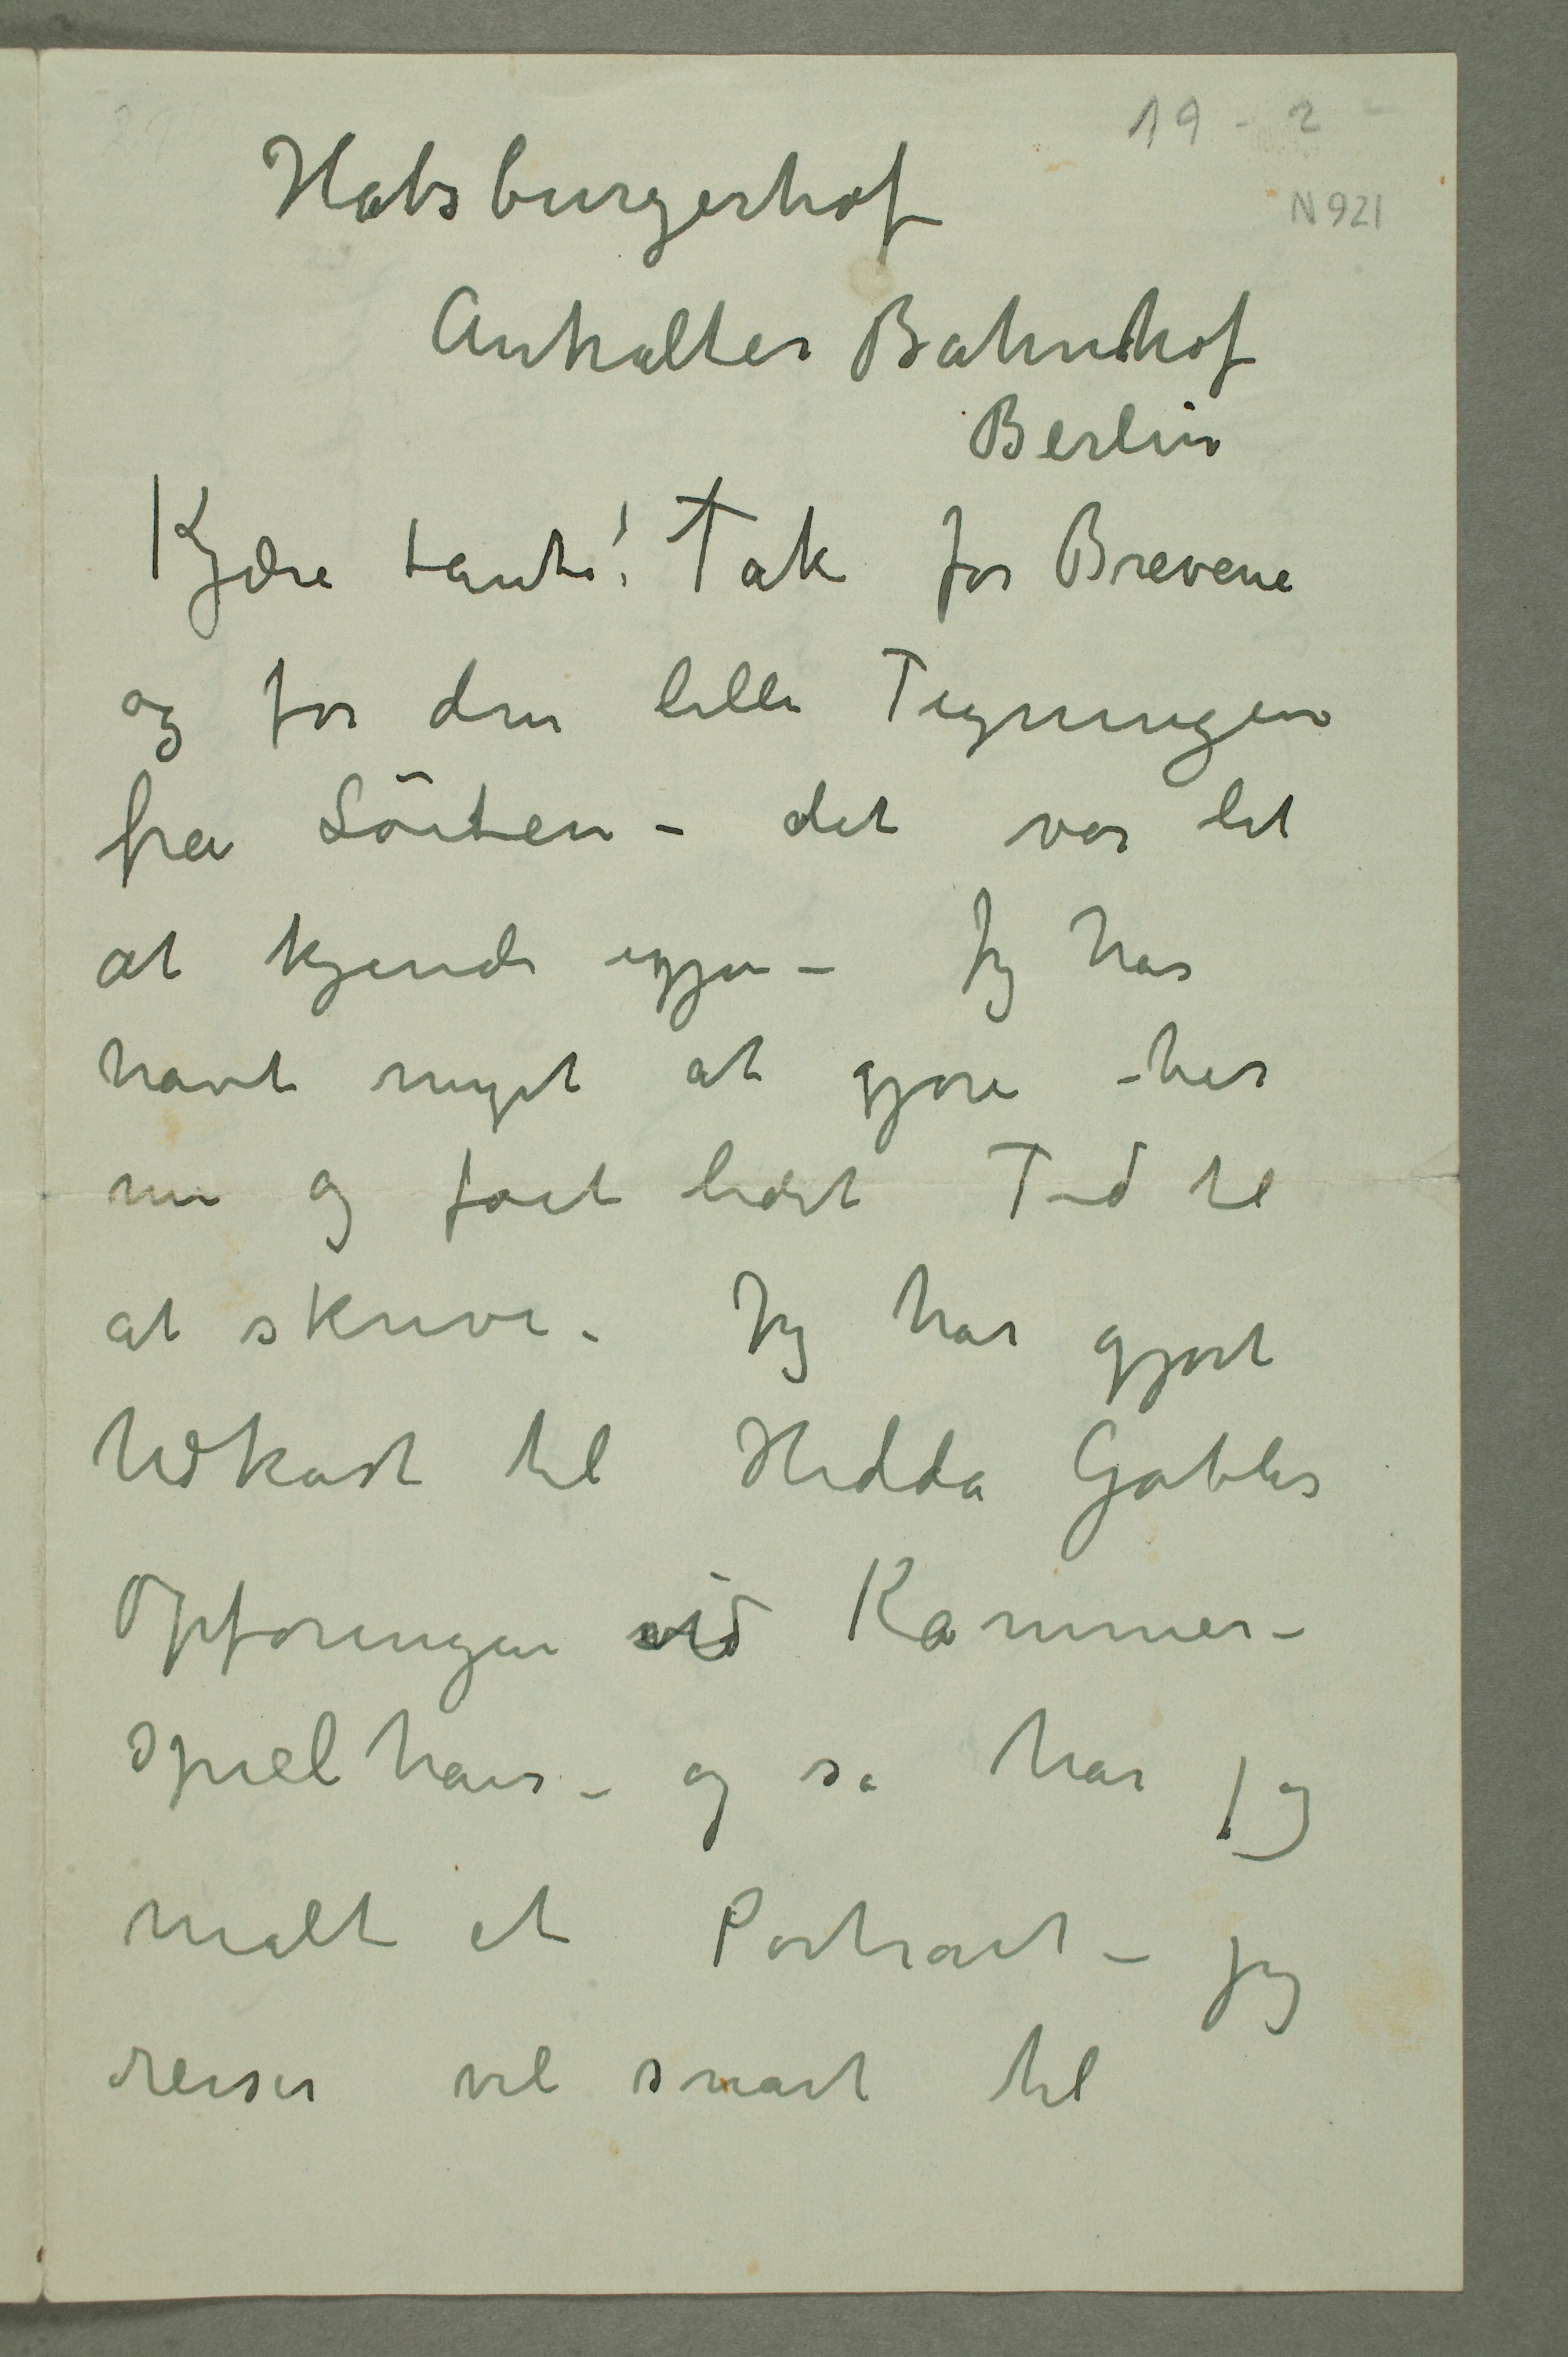 19 - 2 -
N 921
Habsburgerhof
Anhalter Bahnhof
Berlin
Kjære tante! Tak for Brevene
og for den lille Tegningen
fra Löiten – det var let
at kjende igjen – Jeg har
havt meget at gjøre her
nu og fået lidet Tid til
at skrive – Jeg har gjort
Udkast til Hedda Gabler
Opføringen vid Kammer-
spielhaus – og så har jeg
malt et Portræt – jeg
reiser vel snart til